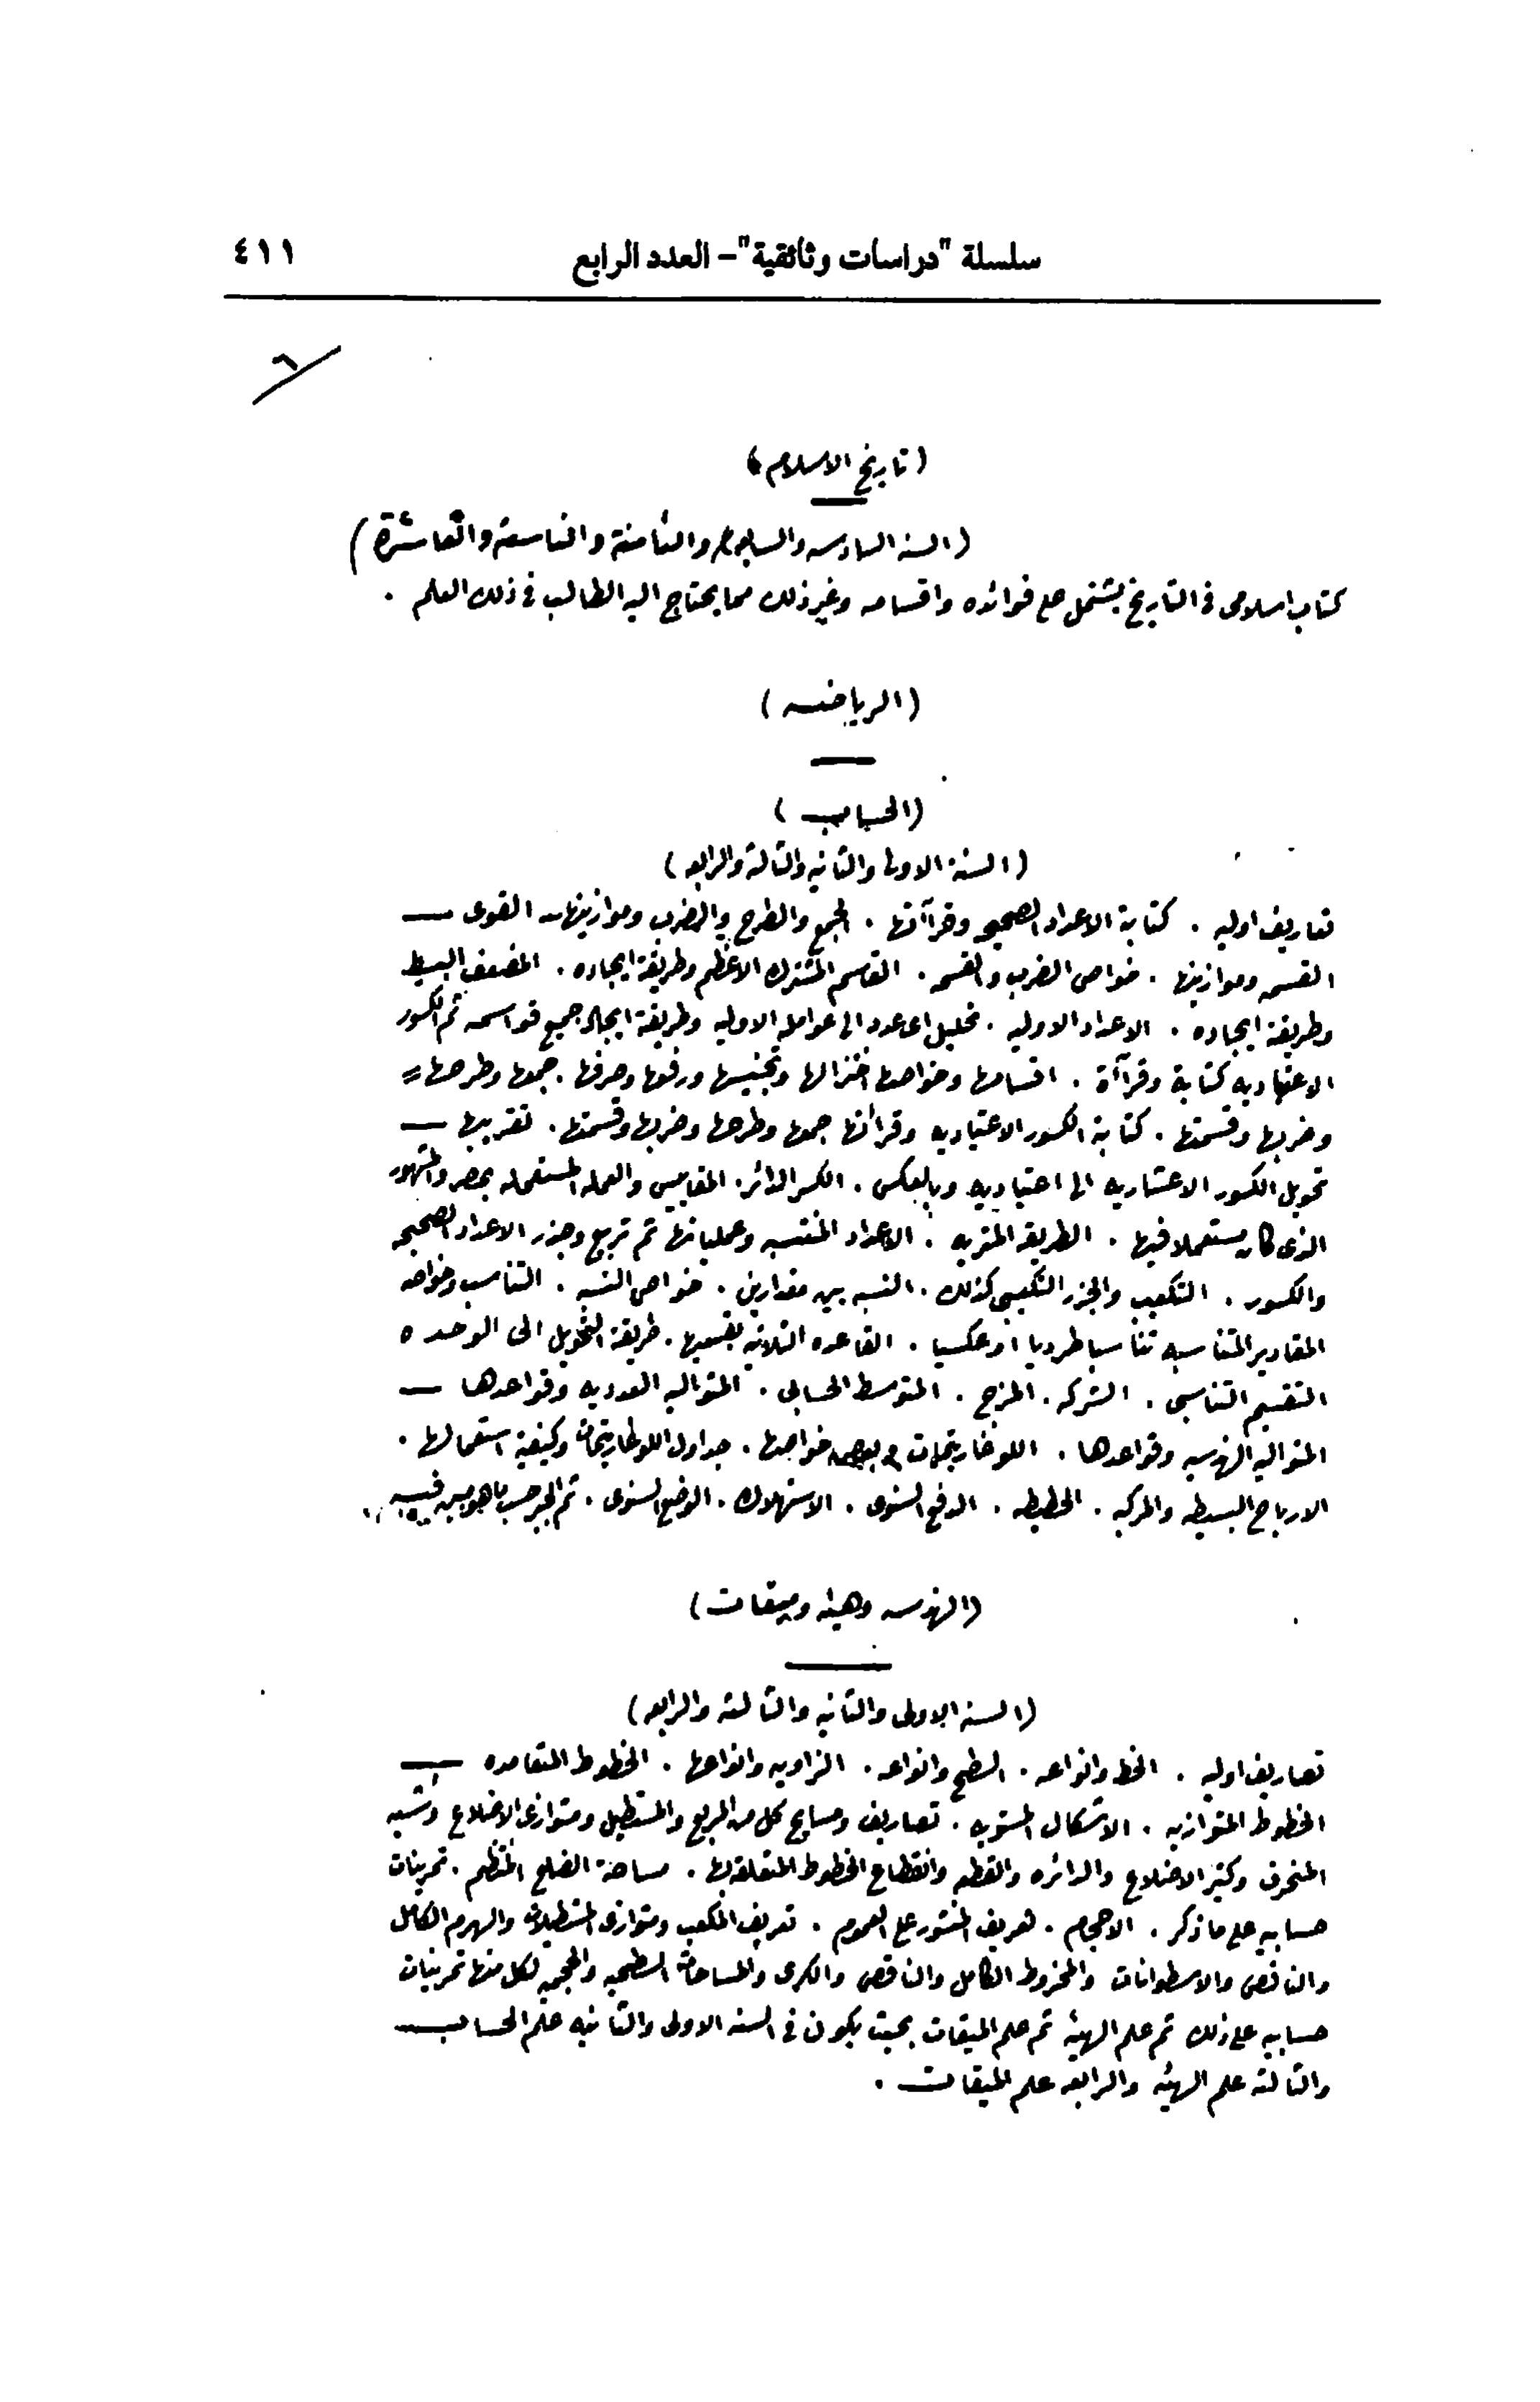 سلسلة "دراسات وثائقية" – العدد الرابع
٤١١
٦
(تاريخ الاسلام)
(السنه السادسه والسابعه والثامنة والتاسعة والعاشرة)
كتاب اسلامى فى التاريخ يشتمل على فوائده واقسامه وغير ذلك مما يحتاج اليه الطالب فى ذلك العلم .
(الرياضه)
(الحساب)
(السنة الاولى والثانيه والثالثة والرابعه)
تعاريف اوليه . كتابة الاعداد الصحيحه وقراآتها . الجمع والطرح والضرب وموازينها القوى
القسمه وموازينها . خواص الضرب والقسمه . القاسم المشترك الاعظم وطريقة ايجاده . المضعف البسيط
وطريقة ايجاده . الاعداد الاوليه . تحليل اى عدد الى عوامله الاوليه وطريقة ايجاد جميع قواسمه ثم الكسور
الاعتياديه كتابة وقراآة . اقسامها وخواصها اختزالها وتجنيسها ورفعها وصرفها . جمعها وطرحها
وضربها وقسمتها . كتابة الكسور الاعتياديه وقرائتها جمعها وطرحها وضربها وقسمتها . تقريبها
تحويل الكسور الاعشاريه الى اعتياديه وبالعكس . الكسر الدائر . المقاييس والعمله المستعمله بمصر والمشهور
الذى كان مستعملا فيها . الطريقه المتريه . الاعداد المنتسبه وعملياتها ثم تربيع وجذر الاعداد الصحيحه
والكسور . التكعيب والجزر التكعيبى كذلك . النسبه بين مقدارين . خواص النسبه . التناسب وخواصه
المقادير المتناسبه تناسبا طرديا او عكسيا . القاعده الثلاثيه بقسميها . طريقة التحويل الى الوحده
التقسيم التناسبى . الشركه . المزج . المتوسط الحسابى . المتواليه العدديه وقواعدها
المتواليه الهندسيه وقواعدها . اللوغاريتمات وبعض خواصها . جداول اللوغاريتمات وكيفية استعمالها .
الارباح البسيطه والمركبه . الحطيطه . الدفع السنوى . الاستهلاك . الوضع السنوى . ثم الجبر حسب ما هو مبين فيه
(الهندسه وهيئه وميقات)
(السنة الاولى والثانيه والثالثه والرابعه)
تعاريف اوليه . الخط وانواعه . السطح وانواعه . الزاويه وانواعها . الخطوط المتعامده
الخطوط المتوازيه . الاشكال المستويه . تعاريف ومسايح كل من المربع والمستطيل ومتوازى الاضلاع وشبه
المنحرف وكثير الاضلاع والدائره والقطع وانقطاع الخطوط المتعلقه بها . مساحة الضلع المنتظم . تمرينات
حسابيه على ما ذكر . الاحجام . تعريف المنشور على العموم . تعريف المكعب ومتوازى المستطيلات والهرم الكامل
والناقص والاسطوانات والمخروط الكامل والناقص والكرى والمساحات السطحيه والحجميه لكل منها تمرينات
حسابيه على ذلك ثم علم الهيئه ثم علم الميقات بحيث يكون فى السنه الاولى والثانيه علم الحساب
والثالثه علم الهيئه والرابعه علم الميقات .